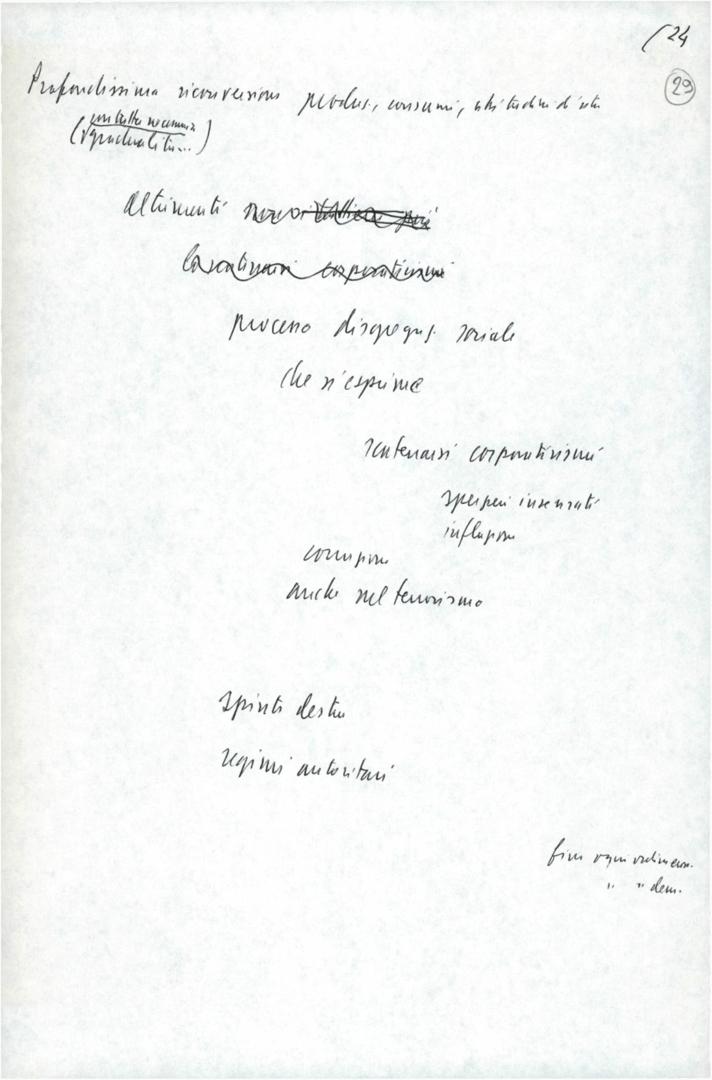 /24
29
Profondissima riconversione produz., consumi, abitudini d'vita
(con tutta necessaria
gradualità...)
Altrimenti nuovi
lacerazioni corporativismi
processo disgregaz. sociale
che si esprime
scatenarsi corporativismi
sperperi insensati
inflazione
corruzione
anche nel terrorismo
spinte destra
regimi autoritari
fine ogni ordin. econ.
" " dem.